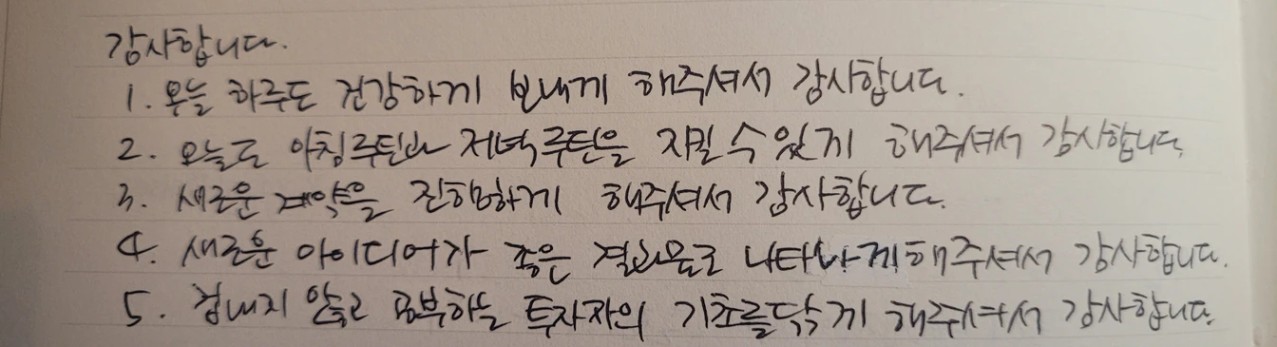 감사합니다.
1. 오늘 하루도 건강하게 보내게 해주셔서 감사합니다.
2. 오늘도 아침루틴과 저녁루틴을 지킬 수 있게 해주셔서 감사합니다.
3. 새로운 계약을 진행하게 해주셔서 감사합니다.
4. 새로운 아이디어가 좋은 결과물로 나타나게 해주셔서 감사합니다.
5. 겁내지 않고 공부하는 투자자의 기초를 닦게 해주셔서 감사합니다.